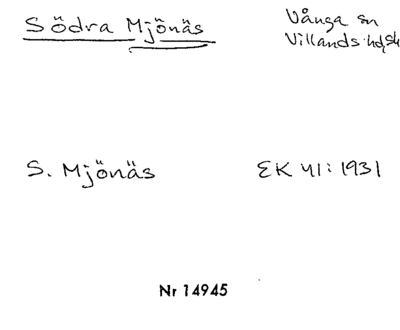 Södra Mjönäs
Vånga sn
Villands hd, Sk
S. Mjönäs
EK 41:1931
Nr 14945